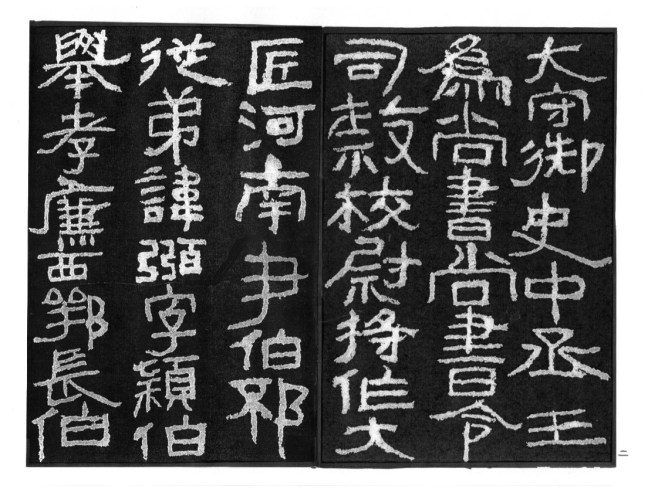 大守御史中丞王
為尚書尚書令
司隸校尉将作大
匠河南尹伯邳
從弟諱弼字穎伯
舉孝廉西鄂長伯
二